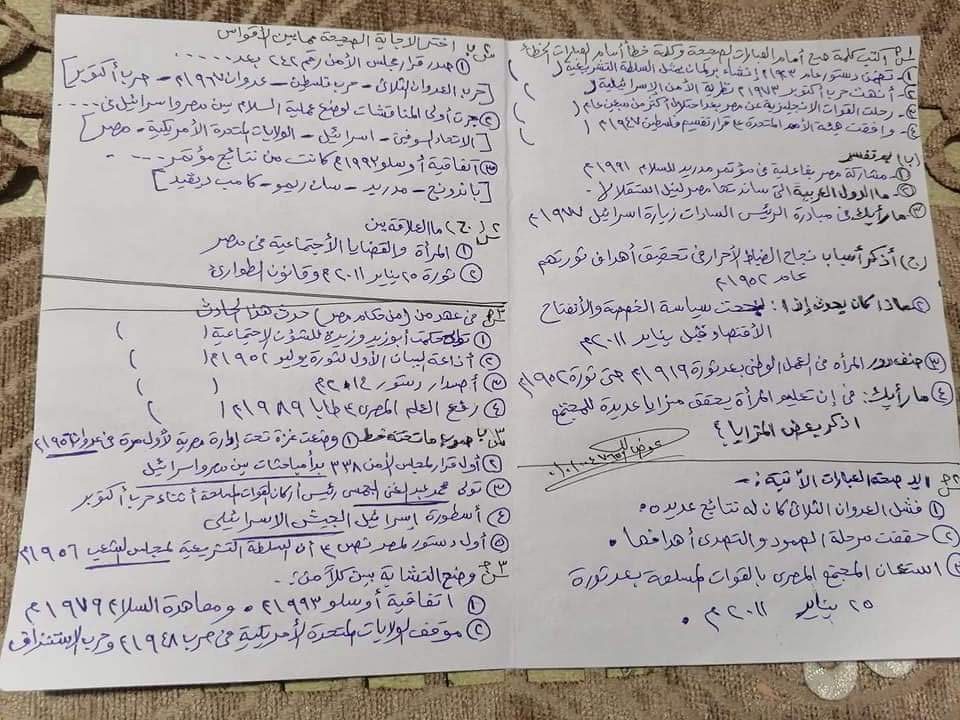 س١ أ كتب كلمة صح أمام العبارات الصحيحة وكلمة خطأ أمام العبارات الخطأ
١- تضمن دستور عام ١٩٢٣م إنشاء برلمان يمثل السلطة التشريعية (    )
٢- أثبتت حرب أكتوبر ١٩٧٣م نظرية الأمن الإسرائيلية (    )
٣- رحلت القوات الإنجليزية عن مصر بعد احتلال أكثر من سبعين عام (    )
٤- وافقت هيئة الأمم المتحدة على قرار تقسيم فلسطين ١٩٤٧م (    )
(ب) بم تفسر
١- مشاركة مصر بفاعلية فى مؤتمر مدريد للسلام ١٩٩١م
٢- ما الدول العربية التى ساندتها مصر لنيل استقلالها
٣- ما رأيك فى مبادرة الرئيس السادات زيارة اسرائيل ١٩٧٧م
(ج) أذكر أسباب نجاح الضباط الأحرار فى تحقيق أهداف ثورتهم
عام ١٩٥٢م
٢ ماذا كان يحدث إذا : نجحت سياسة الخصخصة والأنفتاح
الأقتصادى قبل يناير ٢٠١١م
٣ صنف دور المرأه فى العمل الوطنى بعد ثورة ١٩١٩م حتى ثورة ١٩٥٢م
٤ ما رأيك : فى إن تعليم المرأة يحقق مزايا عديدة للمجتمع
اذكر بعض المزايا ؟
س٢ أ أيد صحة العبارات الأتية :-
١ فشل العدوان الثلاثى كان له نتائج عديده
٢ حققت مرحلة الصمود والتصدى أهدافها .
٣ استعان المجتمع المصرى بالقوات المسلحة بعد ثورة
٢٥ يناير ٢٠١١م .
س٢ ب اختر الإجابة الصحيحة مما بين الأقواس
١ صدر قرار مجلس الأمن رقم ٢٤٢ بعد ......
[حرب العدوان الثلاثى - حرب فلسطين - عدوان ١٩٦٧م - حرب أكتوبر]
٢ جرت أولى المناقشات لوضع عملية السلام بين مصر واسرائيل فى ....
[الاتحاد السوفيتى - اسرائيل - الولايات المتحدة الأمريكية - مصر]
٣ اتفاقية أوسلو ١٩٩٣م كانت من نتائج مؤتمر ....
[باندونج - مدريد - سان ريمو - كامب ديفيد]
س٢ (ج) ما العلاقة بين
١ المرأة والقضايا الأجتماعية فى مصر
٢ ثورة ٢٥ يناير ٢٠١١م وقانون الطوارئ
س٣ أ فى عهد من (من حكام مصر) حدث هذا الحادث
١ تولى حكمت أبوزيد وزيرة للشؤون الإجتماعية (    )
٢ أذاعة البيان الأول لثورة يوليو ١٩٥٢م (    )
٣ أصدار دستور ٢٠١٤م (    )
٤ رفع العلم المصرى على طابا ١٩٨٩م (    )
س٣ ب صوب ما تحته خط ١ وضعت غزة تحت إدارة مصرية لأول مرة فى عدوان ١٩٥٦م
٢ أول قرار لمجلس الأمن ٣٣٨ بدأ مباحثات بين مصر واسرائيل
٣ تولى محمد عبد الغنى الجمسى رئيس أركان القوات المسلحة أثناء حرب أكتوبر
٤ أسطورة إسرائيل الجيش الإسرائيلى
٥ أول دستور لمصر نص على أن السلطة التشريعية لمجلس الشعب ١٩٥٦م
س٣ ج وضح التشابة بين كلاً من :-
١ اتفاقية أوسلو ١٩٩٣م ومعاهدة السلام ١٩٧٩م
٢ موقف الولايات المتحدة الأمريكية فى حرب ١٩٤٨م وحرب الإستنزاف